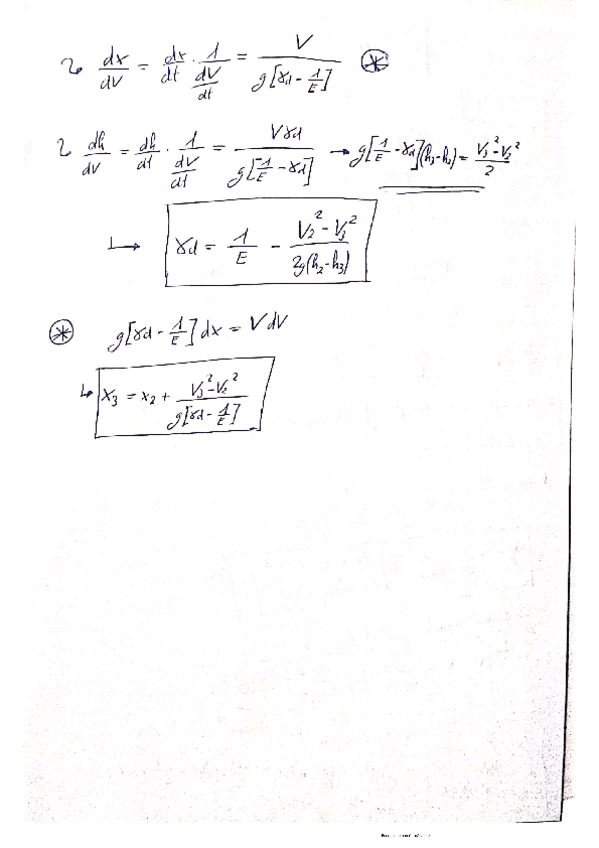 ↳ dx/dV = dx/dt · 1/(dV/dt) = V/(g[γd - 1/E]) ⊛
↳ dh/dV = dh/dt · 1/(dV/dt) = Vγd/(g[1/E - γd]) → g[1/E - γd](h₃-h₂) = (V₃²-V₂²)/2
↳ γd = 1/E - (V₂² - V₃²)/(2g(h₂-h₃))
⊛ g[γd - 1/E]dx = VdV
↳ x₃ = x₂ + (V₃²-V₂²)/(g[γd - 1/E])